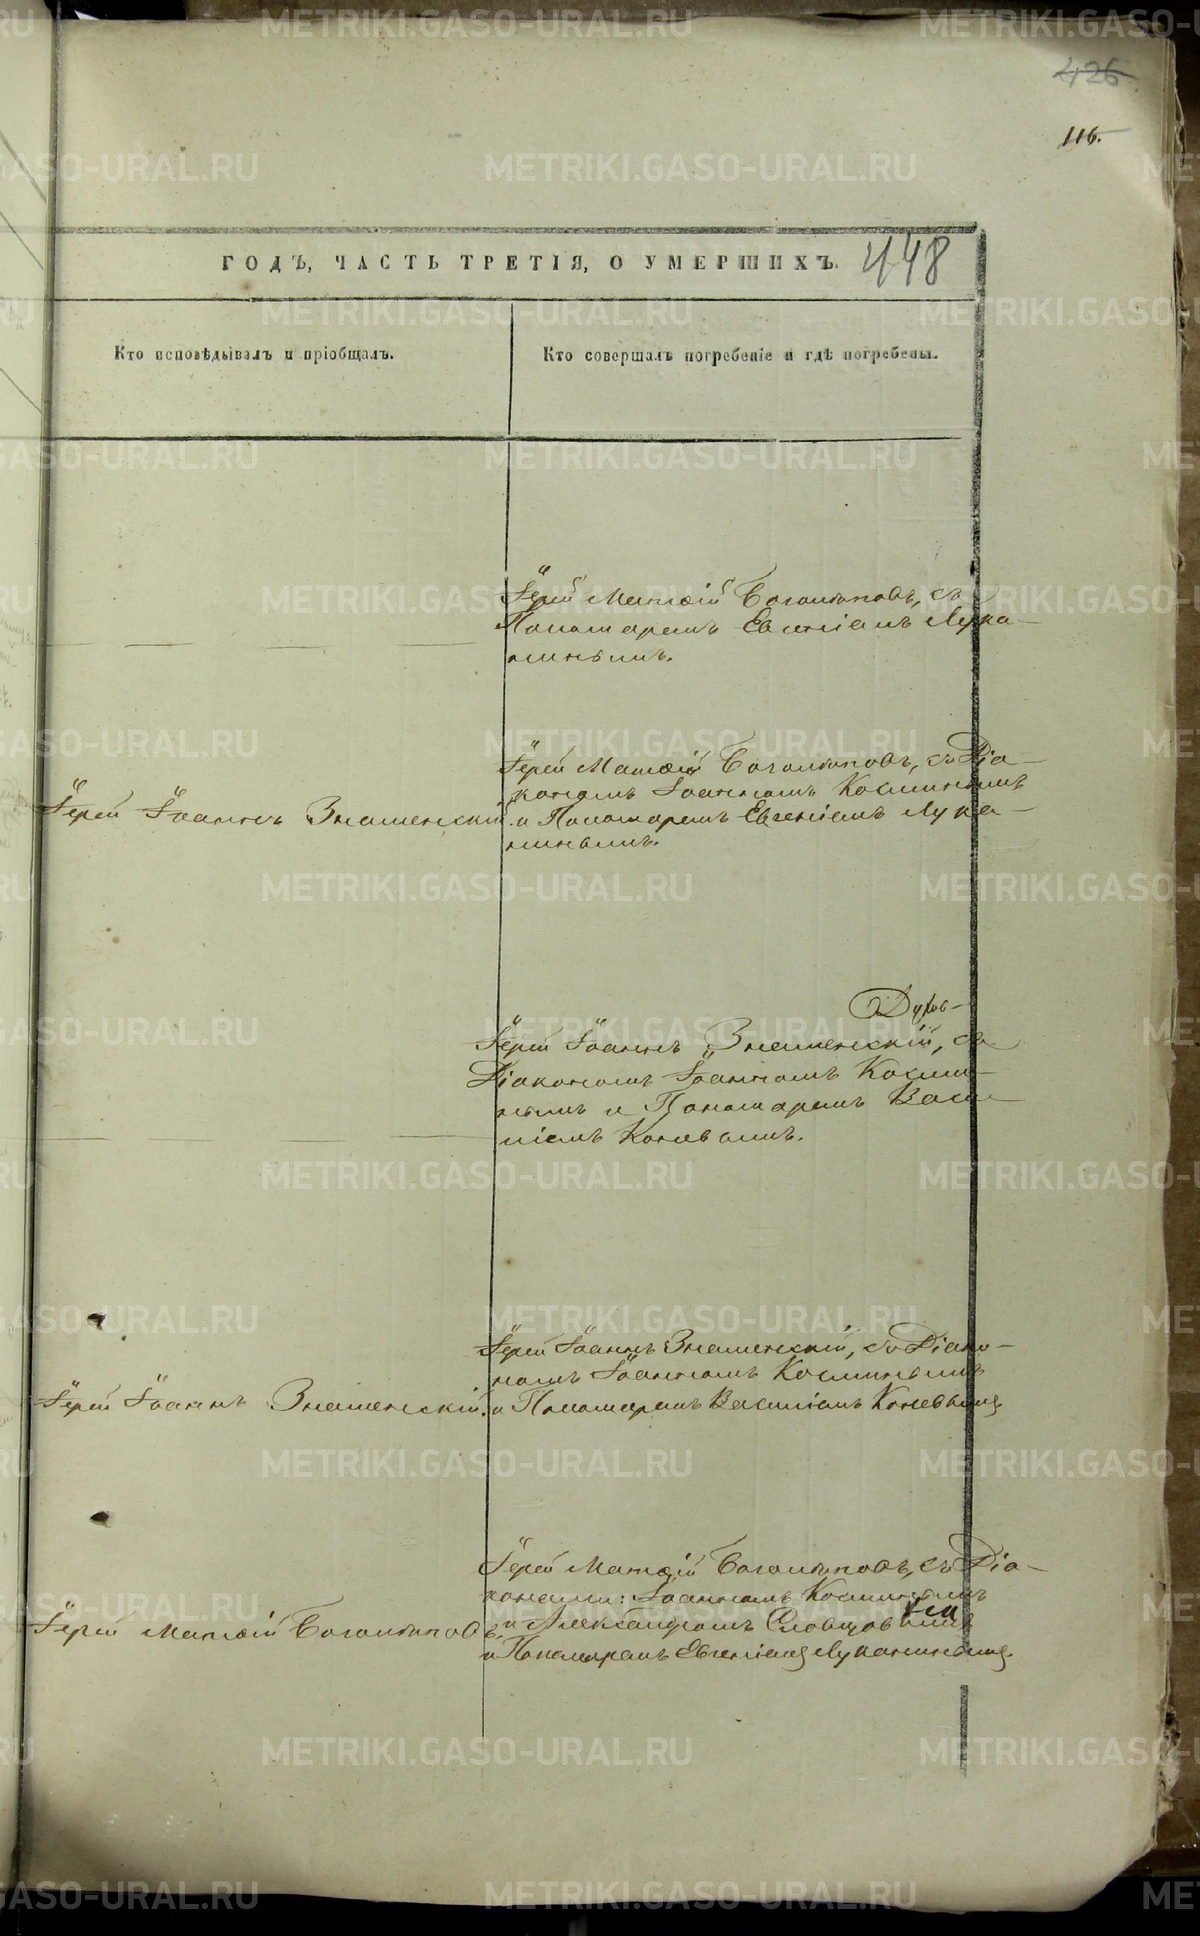 426
116.
ГОДЪ, ЧАСТЬ ТРЕТІЯ, О УМЕРШИХЪ.
448
Кто исповѣдывалъ и пріобщалъ.
Кто совершалъ погребеніе и гдѣ погребены.
Іерей Матѳій Боголѣповъ, съ
Пономаремъ Евгеніемъ Лука-
нинымъ.
Іерей Іоаннъ Знаменскій.
Іерей Матѳій Боголѣповъ, съ Діа-
кономъ Іоанномъ Косминымъ
и Пономаремъ Евгеніемъ Лука-
нинымъ.
Іерей Іоаннъ Знаменскій, съ
Діакономъ Іоанномъ Косми-
нымъ и Пономаремъ Васи-
ліемъ Коневымъ.
Іерей Іоаннъ Знаменскій.
Іерей Іоаннъ Знаменскій, съ Діако-
номъ Іоанномъ Косминымъ
и Пономаремъ Василіемъ Коневымъ
Іерей Матѳій Боголѣповъ.
Іерей Матѳій Боголѣповъ, съ Діа-
конами: Іоанномъ Косминымъ
и Александромъ Словцовымъ
и Пономаремъ Евгеніемъ Луканинымъ.
METRIKI.GASO-URAL.RU